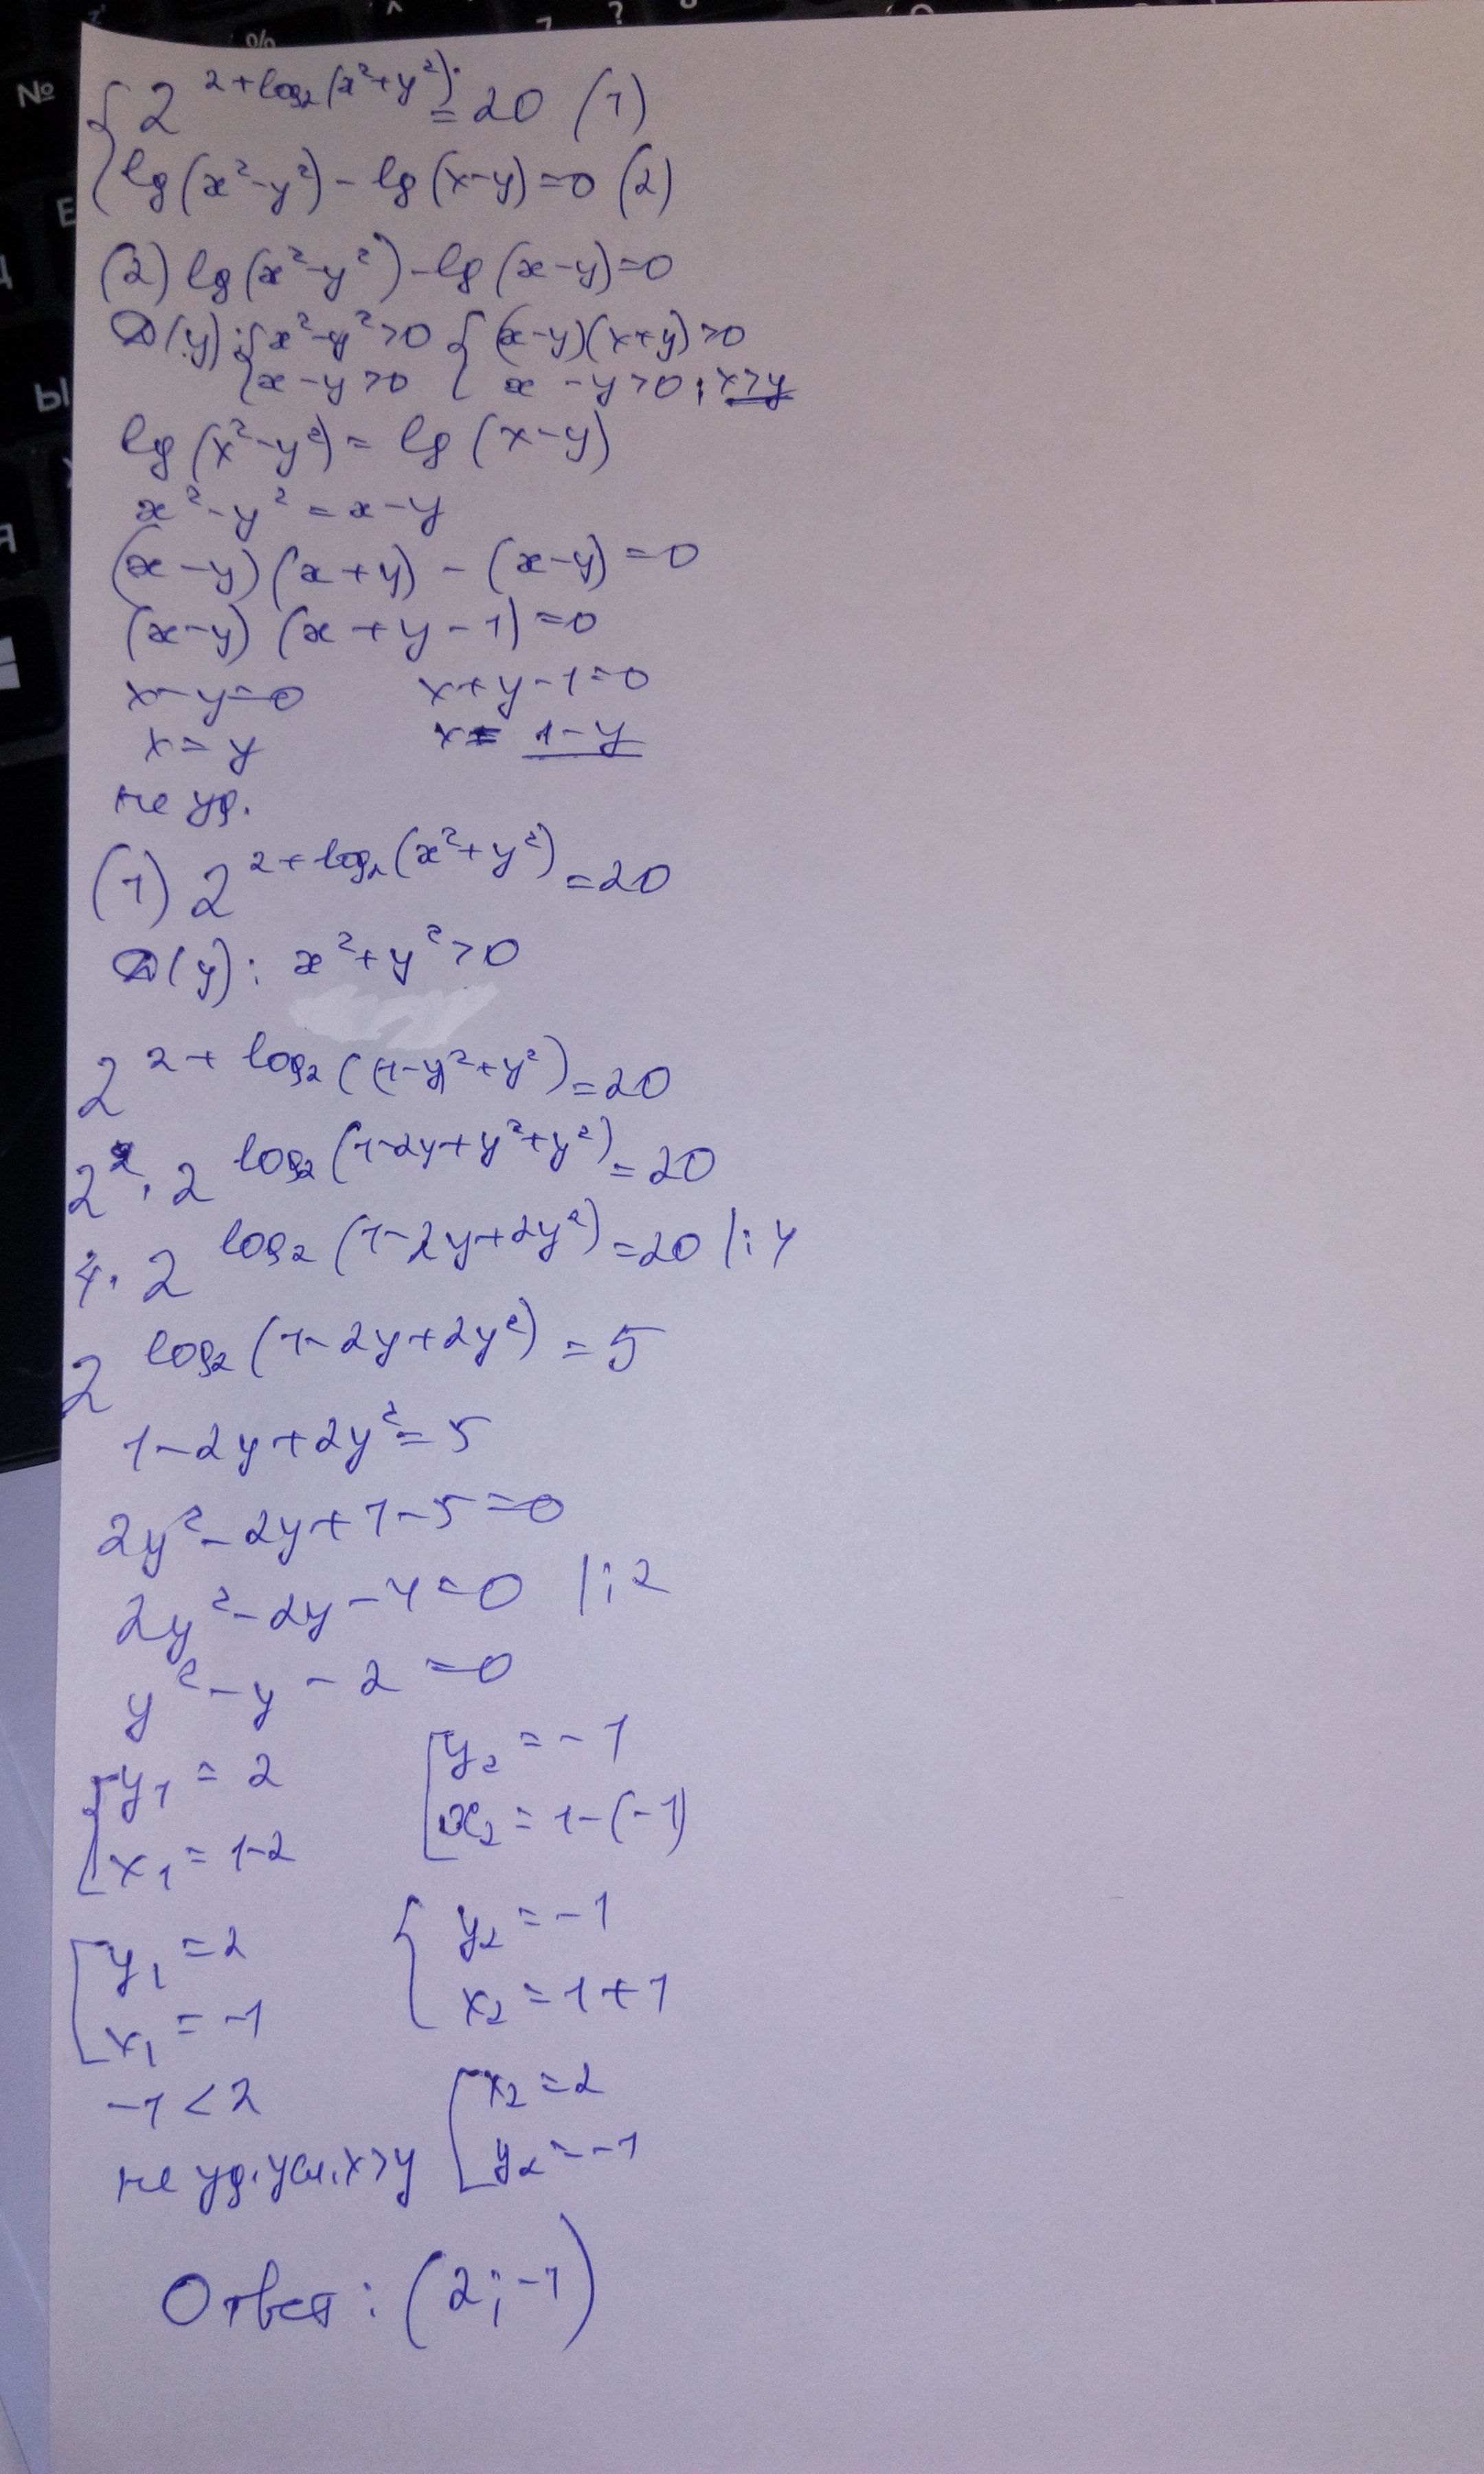 №
%
?
Е
Ы
Я
{ 2^(2+log₂(x²+y²)) = 20 (1)
{ lg(x²-y²) - lg(x-y) = 0 (2)
(2) lg(x²-y²) - lg(x-y) = 0
D(y): { x²-y²>0 { (x-y)(x+y)>0
{ x-y>0 { x-y>0; x>y
lg(x²-y²) = lg(x-y)
x²-y² = x-y
(x-y)(x+y) - (x-y) = 0
(x-y)(x+y-1) = 0
x-y=0 x+y-1=0
x=y x = 1-y
не уд.
(1) 2^(2+log₂(x²+y²)) = 20
D(y): x²+y²>0
2^(2+log₂((1-y)²+y²)) = 20
2² · 2^(log₂(1-2y+y²+y²)) = 20
4 · 2^(log₂(1-2y+2y²)) = 20 |:4
2^(log₂(1-2y+2y²)) = 5
1-2y+2y² = 5
2y²-2y+1-5=0
2y²-2y-4=0 |:2
y²-y-2=0
[ y₁ = 2 [ y₂ = -1
[ x₁ = 1-2 [ x₂ = 1-(-1)
[ y₁ = 2 { y₂ = -1
[ x₁ = -1 { x₂ = 1+1
-1<2 [ x₂ = 2
не уд. усл. x>y [ y₂ = -1
Ответ: (2; -1)